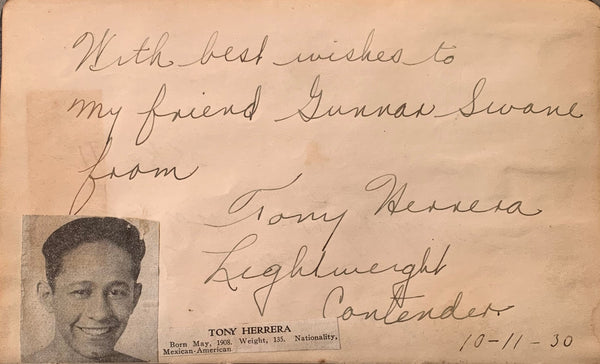 With best wishes to
my friend Gunnar Swane
from
Tony Herrera
Lightweight
Contender
10-11-30
TONY HERRERA
Born May, 1908. Weight, 135. Nationality,
Mexican-American